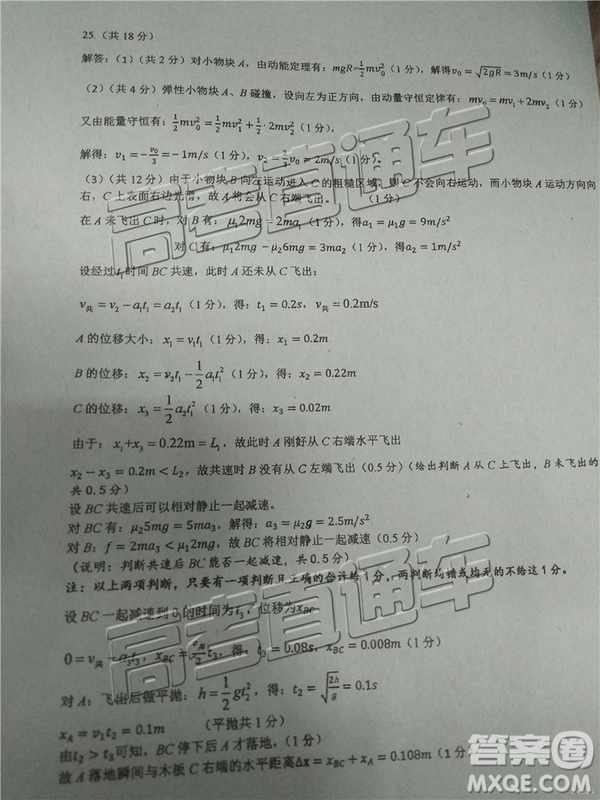 25.（共 18 分）
解答：（1）（共 2 分）对小物块 A，由动能定理有：mgR=½mv₀²（1 分），解得v₀ = √(2gR) = 3m/s（1 分）
（2）（共 4 分）弹性小物块 A、B 碰撞，设向左为正方向，由动量守恒定律有：mv₀ = mv₁ + 2mv₂（1 分）
又由能量守恒有：½mv₀² = ½mv₁² + ½·2mv₂²（1 分），
解得：v₁ = −v₀/3 = −1m/s（1 分），v₂ = ⅔v₀ = 2m/s（1 分）。
（3）（共 12 分）由于小物块 B 向左运动进入 C 的粗糙区域，则 C 不会向右运动，而小物块 A 运动方向向
右，C 上表面右边光滑，故 A 将会从 C 右端飞出。（1 分）
在 A 未飞出 C 时，对 B 有：μ₁2mg = 2ma₁（1 分），得a₁ = μ₁g = 9m/s²
对 C 有：μ₁2mg − μ₂6mg = 3ma₂（1 分），得a₂ = 1m/s²
设经过t₁时间 BC 共速，此时 A 还未从 C 飞出：
v共 = v₂ − a₁t₁ = a₂t₁（1 分），得：t₁ = 0.2s，v共 = 0.2m/s
A 的位移大小：x₁ = v₁t₁（1 分），得：x₁ = 0.2m
B 的位移：x₂ = v₂t₁ − ½a₁t₁²（1 分），得：x₂ = 0.22m
C 的位移：x₃ = ½a₂t₁²（1 分），得：x₃ = 0.02m
由于：x₁+x₃ = 0.22m = L₁，故此时 A 刚好从 C 右端水平飞出
x₂ − x₃ = 0.2m < L₂，故共速时 B 没有从 C 左端飞出（0.5 分）（给出判断 A 从 C 上飞出，B 未飞出的
共 0.5 分）
设 BC 共速后可以相对静止一起减速。
对 BC 有：μ₂5mg = 5ma₃，解得：a₃ = μ₂g = 2.5m/s²
对 B：f = 2ma₃ < μ₁2mg，故 BC 将相对静止一起减速（0.5 分）
（说明：判断共速后 BC 能否一起减速，共 0.5 分）
注：以上两项判断，只要有一项判断且正确的合计给 1 分，两判断均错或均无的不给这 1 分。
设 BC 一起减速到 0 的时间为t₃，位移为xBC
0 = v共 − a₃t₃，xBC = v共/2 t₃，得：t₃ = 0.08s，xBC = 0.008m（1 分）
对 A：飞出后做平抛：h = ½gt₂²，得：t₂ = √(2h/g) = 0.1s
xA = v₁t₂ = 0.1m （平抛共 1 分）
由t₂ > t₃可知，BC 停下后 A 才落地，（1 分）
故 A 落地瞬间与木板 C 右端的水平距离Δx = xBC + xA = 0.108m（1 分）
高考直通车
高考直通车
高考直通车
答案圈
MXQE.COM